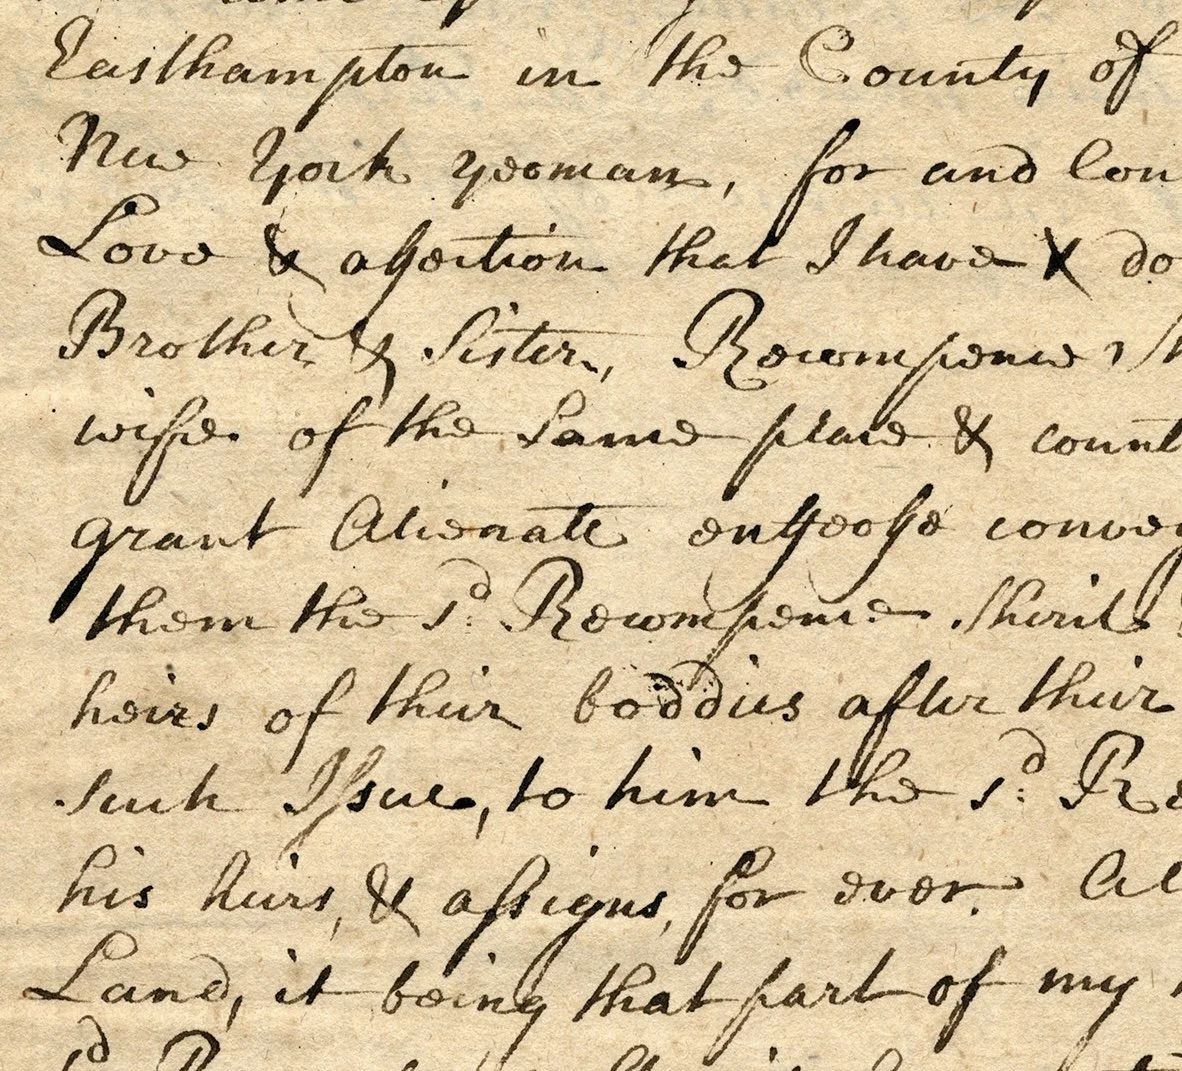 Easthampton in the County of
New York yeoman, for and Con
Love & affection that I have & do
Brother & Sister, Recompence Sh
wife of the Same place & count
grant Alienate enffeoffe convey
them the sd. Recompence Shiril
heirs of their boddies after their
such Issue, to him the sd. Re
his heirs, & assigns, for ever. Al
Land, it being that part of my
sd